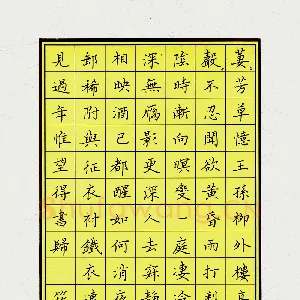 萋々芳草憶王孫柳外樓高
聲々不忍聞欲黃昏雨打梨
陰時漸向暝變一庭淒冷
深無雁影更深人去寂靜
相映酒已都醒如何消夜
郵稀附與征衣襯鐵衣連
見過年惟望得書歸